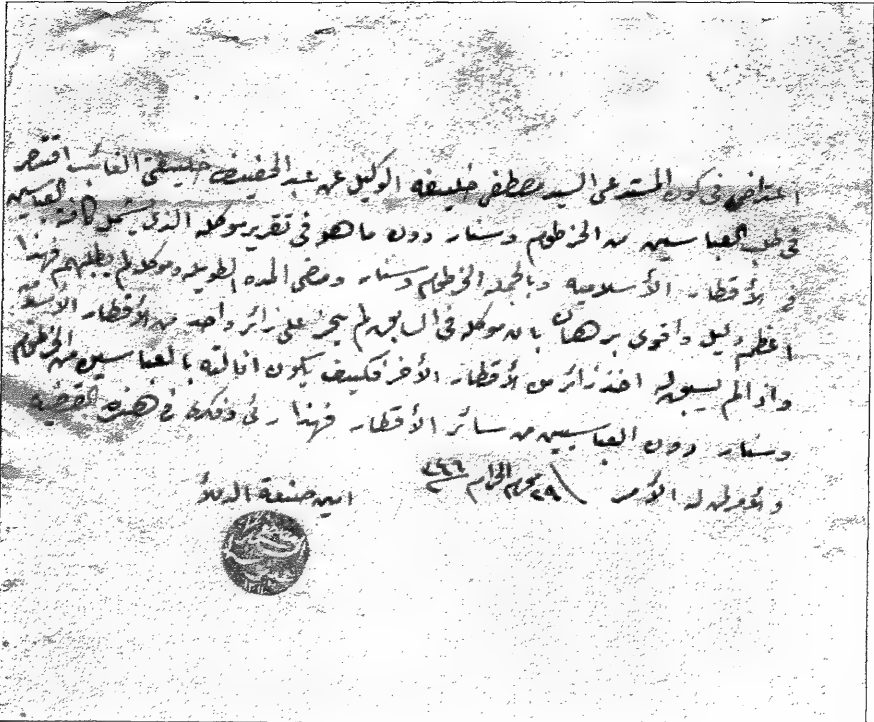 اعتراضي في كون المستدعي السيد مصطفى خليفه الوكيل عن عبد الحفيظ خليفتي الغائب اقتصر
في طلب العباسيين من الخرطوم وسنار دون ما هو في تقرير موكله الذي يشمل كافة العباسيين
في الأقطار الأسلاميه وبالجمله الخرطوم وسنار ومضى المده الطويله وموكله لم يطلبهم فهذا
اعظم دليل واقوى برهان بان موكله في السابق لم يحز على زائر واحد من الأقطار
واذا لم يسبق له اخذ زائر من الأقطار الأخر فكيف يكون انا لته بالعباسيين من الخرطوم
وسنار دون العباسيين من سائر الأقطار فهذا رئى وفكرى في هذه القضيه
والأمر لمن له الأمر ٢٩ محرم الحرام
امين صنعة الدلاء